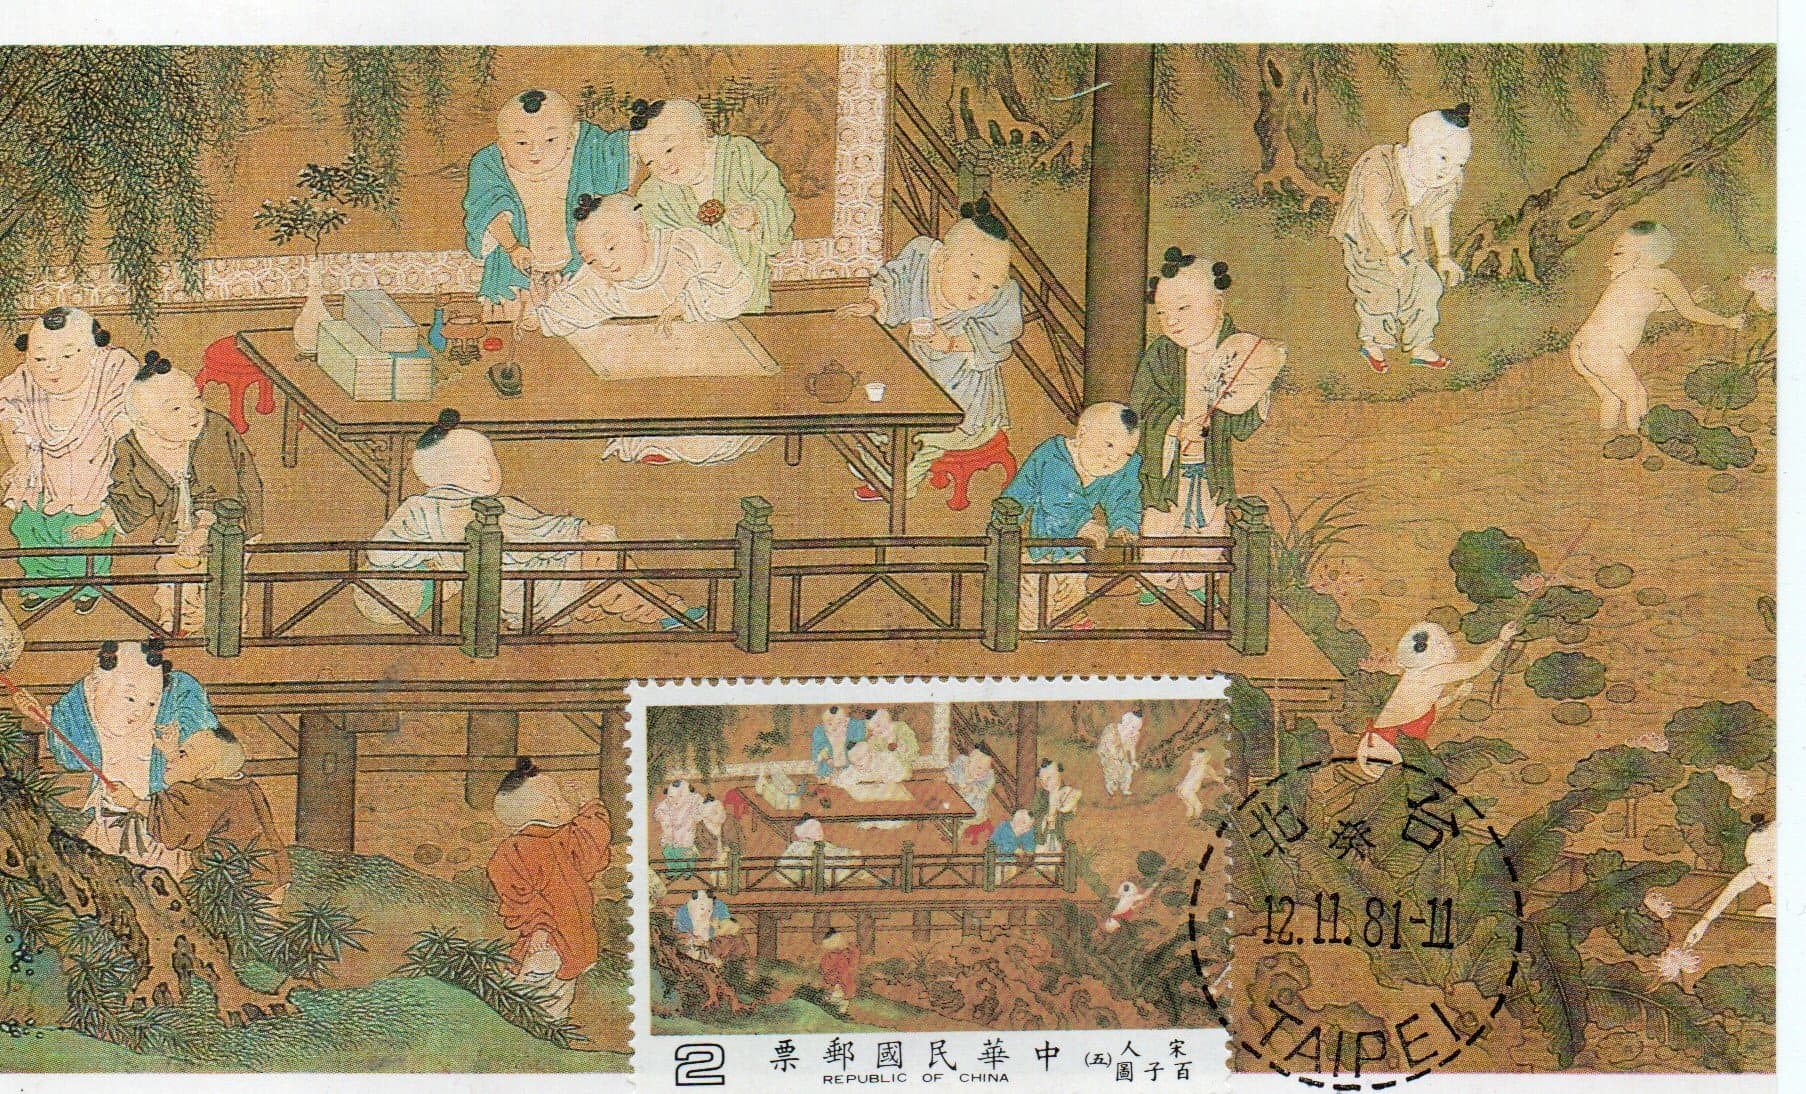 宋人
百子圖
(五)
中華民國郵票
REPUBLIC OF CHINA
2
台北
12.11.81-11
TAIPEI